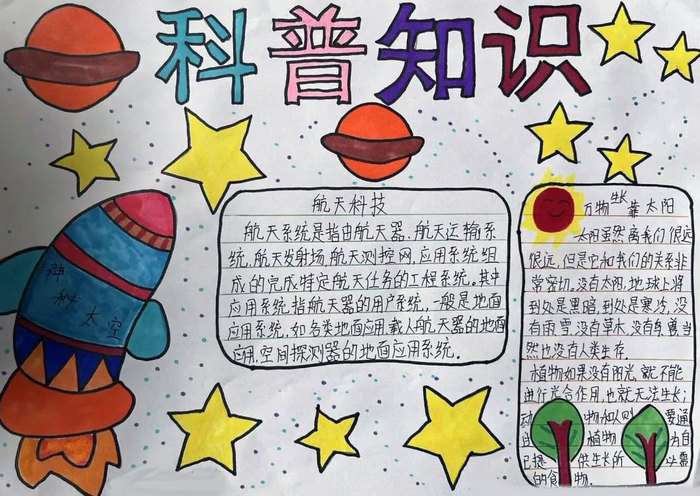 科普知识
神秘太空
航天科技
航天系统是指由航天器、航天运输系
统、航天发射场、航天测控网、应用系统组
成的完成特定航天任务的工程系统。其中
应用系统指航天器的用户系统，一般是地面
应用系统，如各类地面应用、载人航天器的地面
应用、空间探测器的地面应用系统。
万物生长靠太阳
太阳虽然离我们很远
很远，但是它和我们的关系非
常密切，没有太阳，地球上将
到处是黑暗，到处是寒冷，没
有雨、雪，没有草、木，没有鸟、兽，当
然也没有人类生存。
植物如果没有阳光，就不能
进行光合作用，也就无法生长；
动 物和人则 要通
植物 为自
己提 供生长所 需
的食 物。